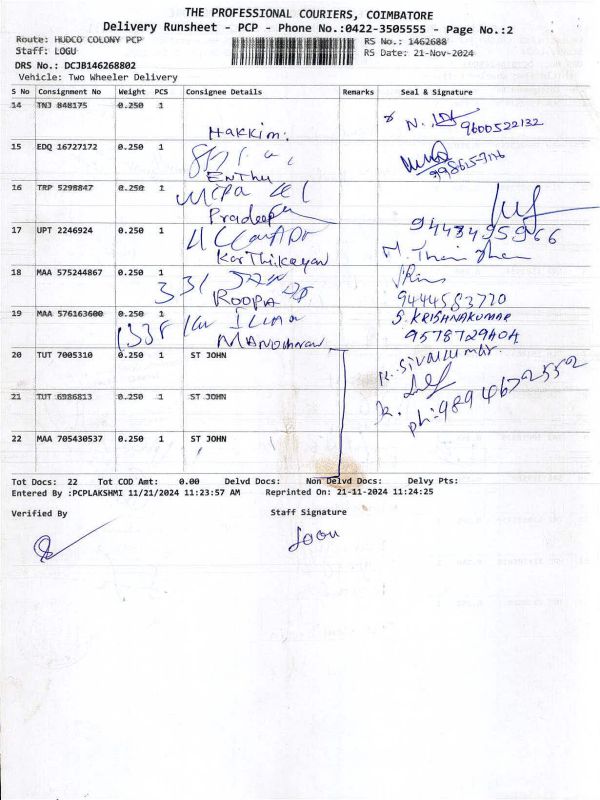 THE PROFESSIONAL COURIERS, COIMBATORE
Delivery Runsheet - PCP - Phone No.:0422-3505555 - Page No.:2
Route: HUDCO COLONY PCP RS No.: 1462688
Staff: LOGU RS Date: 21-Nov-2024
DRS No.: DCJB146268802
Vehicle: Two Wheeler Delivery
S No Consignment No Weight PCS Consignee Details Remarks Seal & Signature
14 TNJ 848175 0.250 1
Hakkim. 9600522132
15 EDQ 16727172 0.250 1
ENTHU
16 TRP 5298847 0.250 1
Pradeep
17 UPT 2246924 0.250 1 9443495966
KarThikayan
18 MAA 575244867 0.250 1
ROOPA 9444583770
19 MAA 576163600 0.250 1 S. KRISHNAKUMAR
MANOHARAN 9578729404
20 TUT 7005310 0.250 1 ST JOHN K. Sivakumar.
21 TUT 6986813 0.250 1 ST JOHN ph: 9894672552
22 MAA 705430537 0.250 1 ST JOHN
Tot Docs: 22 Tot COD Amt: 0.00 Delvd Docs: Non Delvd Docs: Delvy Pts:
Entered By :PCPLAKSHMI 11/21/2024 11:23:57 AM Reprinted On: 21-11-2024 11:24:25
Verified By Staff Signature